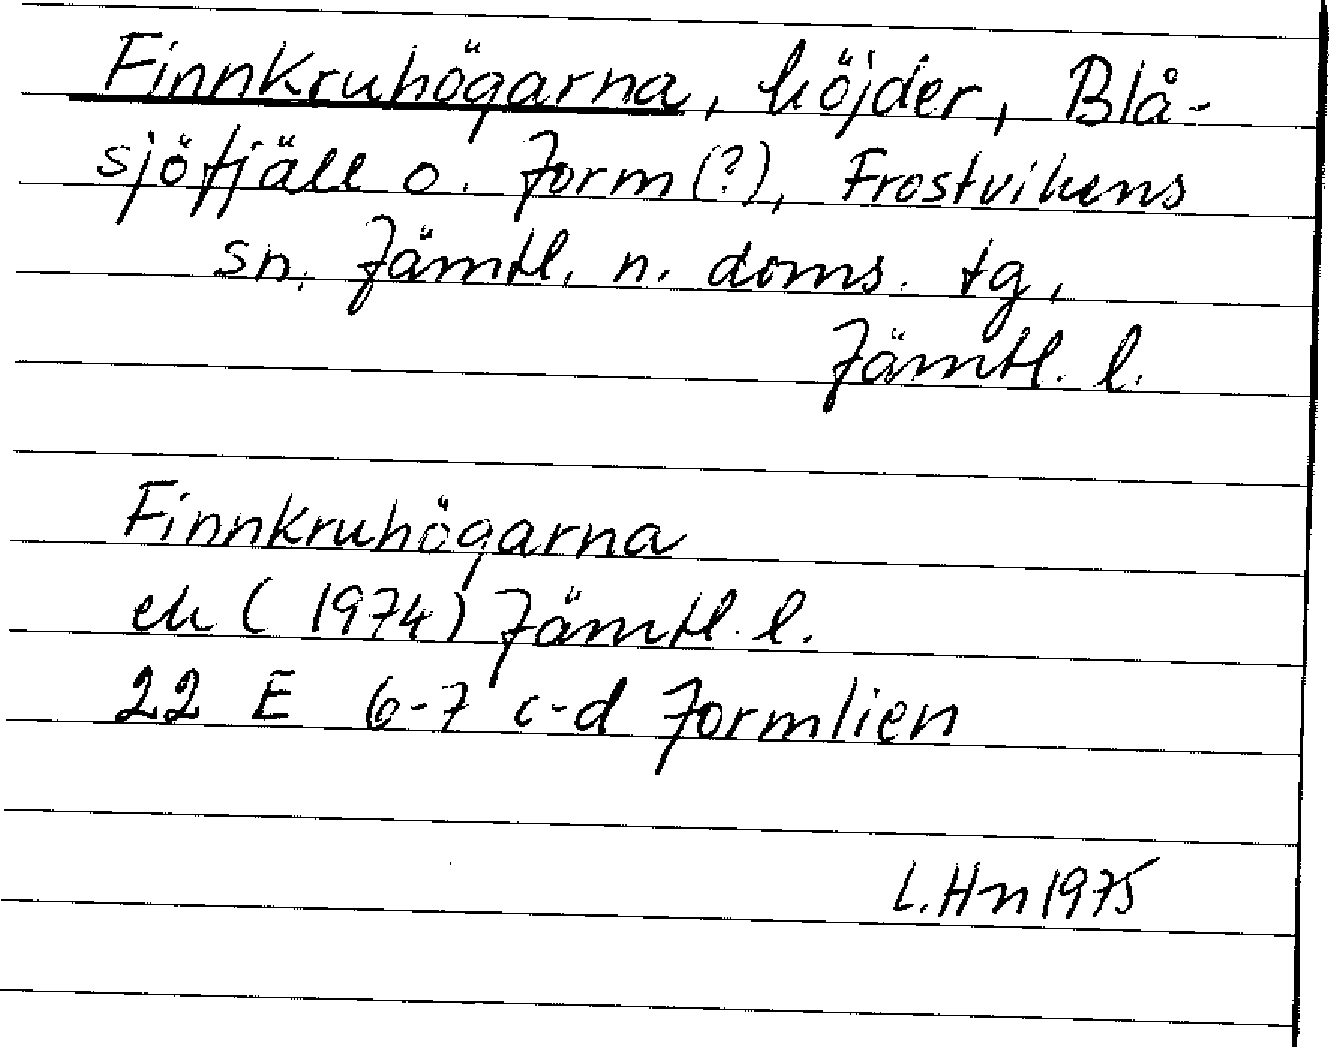 Finnkruhögarna, höjder, Blå-
sjöfjäll o. Jorm (?), Frostvikens
sn, Jämtl. n. doms. tg,
Jämtl. l.
Finnkruhögarna
ek (1974) Jämtl. l.
22 E 6-7 c-d Jormlien
L. Hn 1975